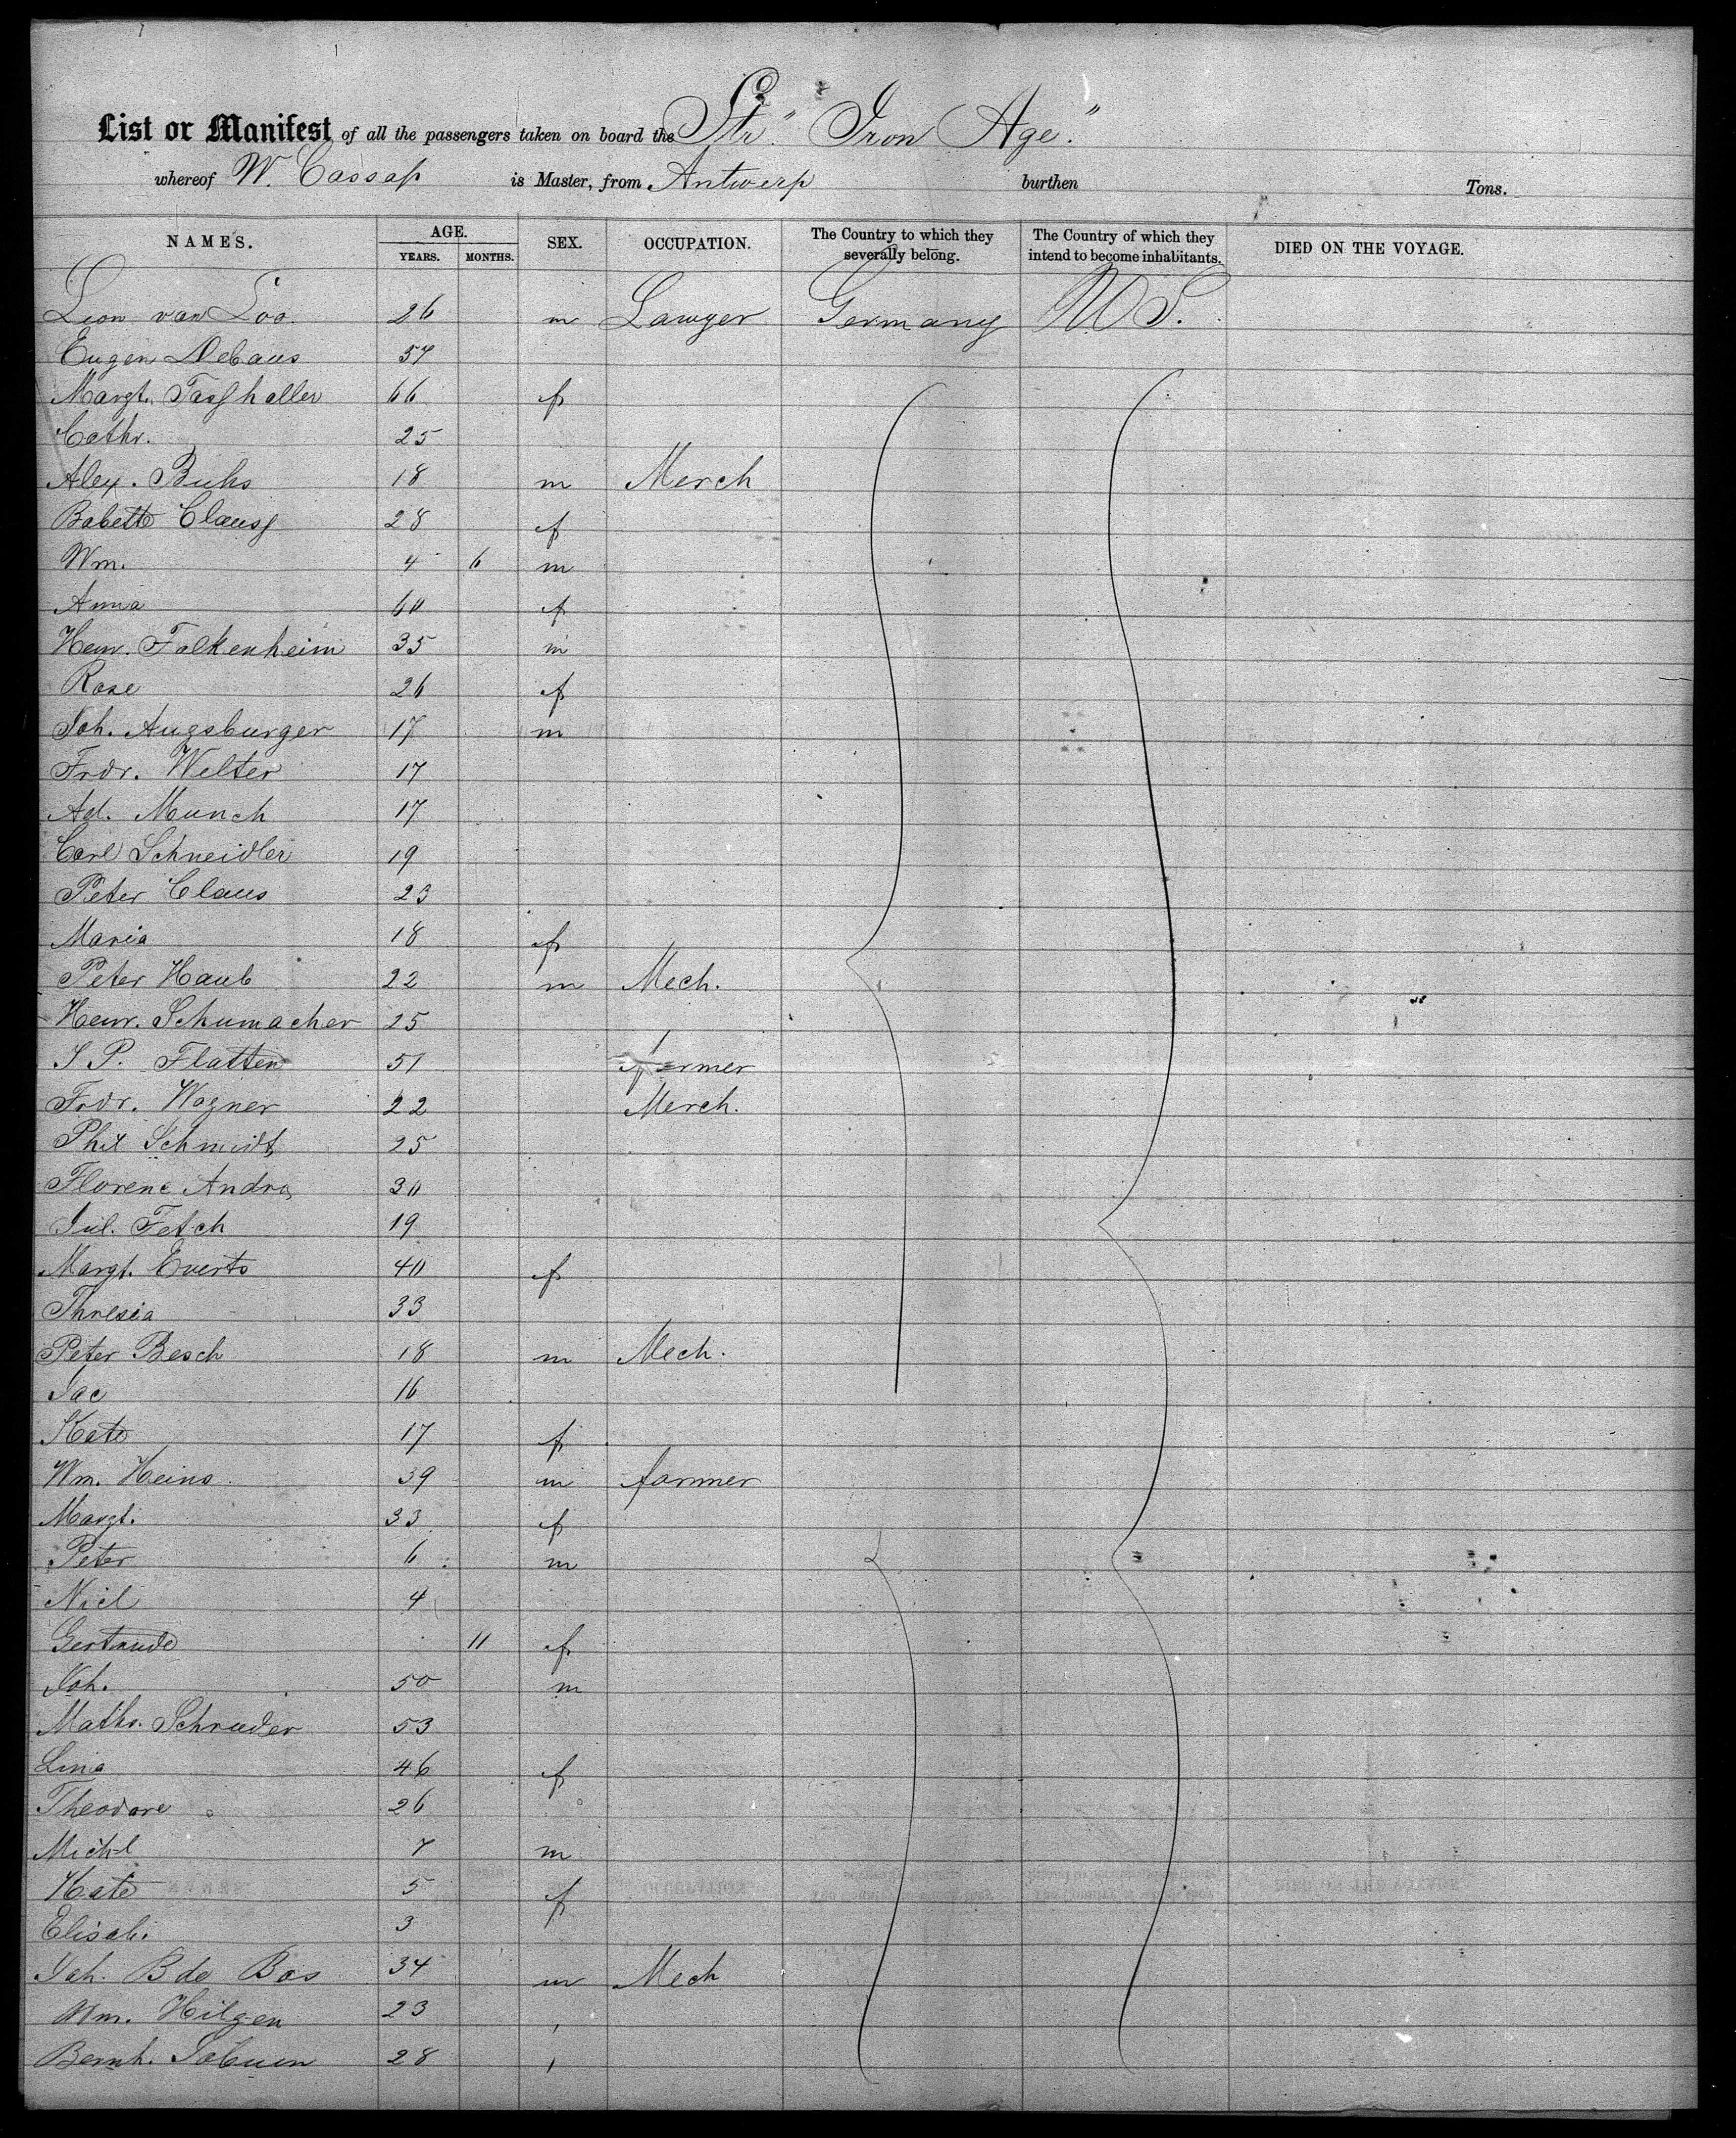 List or Manifest of all the passengers taken on board the Str. "Iron Age."
whereof W. Cassap is Master, from Antwerp burthen Tons.
NAMES. AGE. YEARS. MONTHS. SEX. OCCUPATION. The Country to which they severally belong. The Country of which they intend to become inhabitants. DIED ON THE VOYAGE.
Leon van Loo. 26 m Lawyer Germany U.S.
Eugen 57
Margt. 66 f
Cathr. 25
Alex. Buhs 18 m Merch
Babette Clauss 28 f
Wm. 4 6 m
Anna 60 f
Henr. Falkenheim 35 m
Rose 26 f
Joh. Augsburger 17 m
Frdr. Welter 17
Ad. Munch 17
Carl Schneidler 19
Peter Claus 23
Maria 18 f
Peter Haub 22 m Mech.
Henr. Schumacher 25
J P. Flatten 51 farmer
Frdr. Wagner 22 Merch.
Phil Schmidt 25
Florene Andra 30
Jul. Fetch 19
Margt. Everts 40 f
Thresia 33
Peter Besch 18 m Mech.
Jac 16
Kate 17 f
Wm. Heins 39 m farmer
Margt. 33 f
Peter 6 m
Nicl 4
Gertrude 11 f
Joh. 50 m
Maths. Schruder 53
Lina 46 f
Theodore 26
Michl 7 m
Kate 5 f
Elisab. 3
Joh. B de Bos 34 m Mech
Wm. Hilgen 23 ,
Bernh. 28 ,